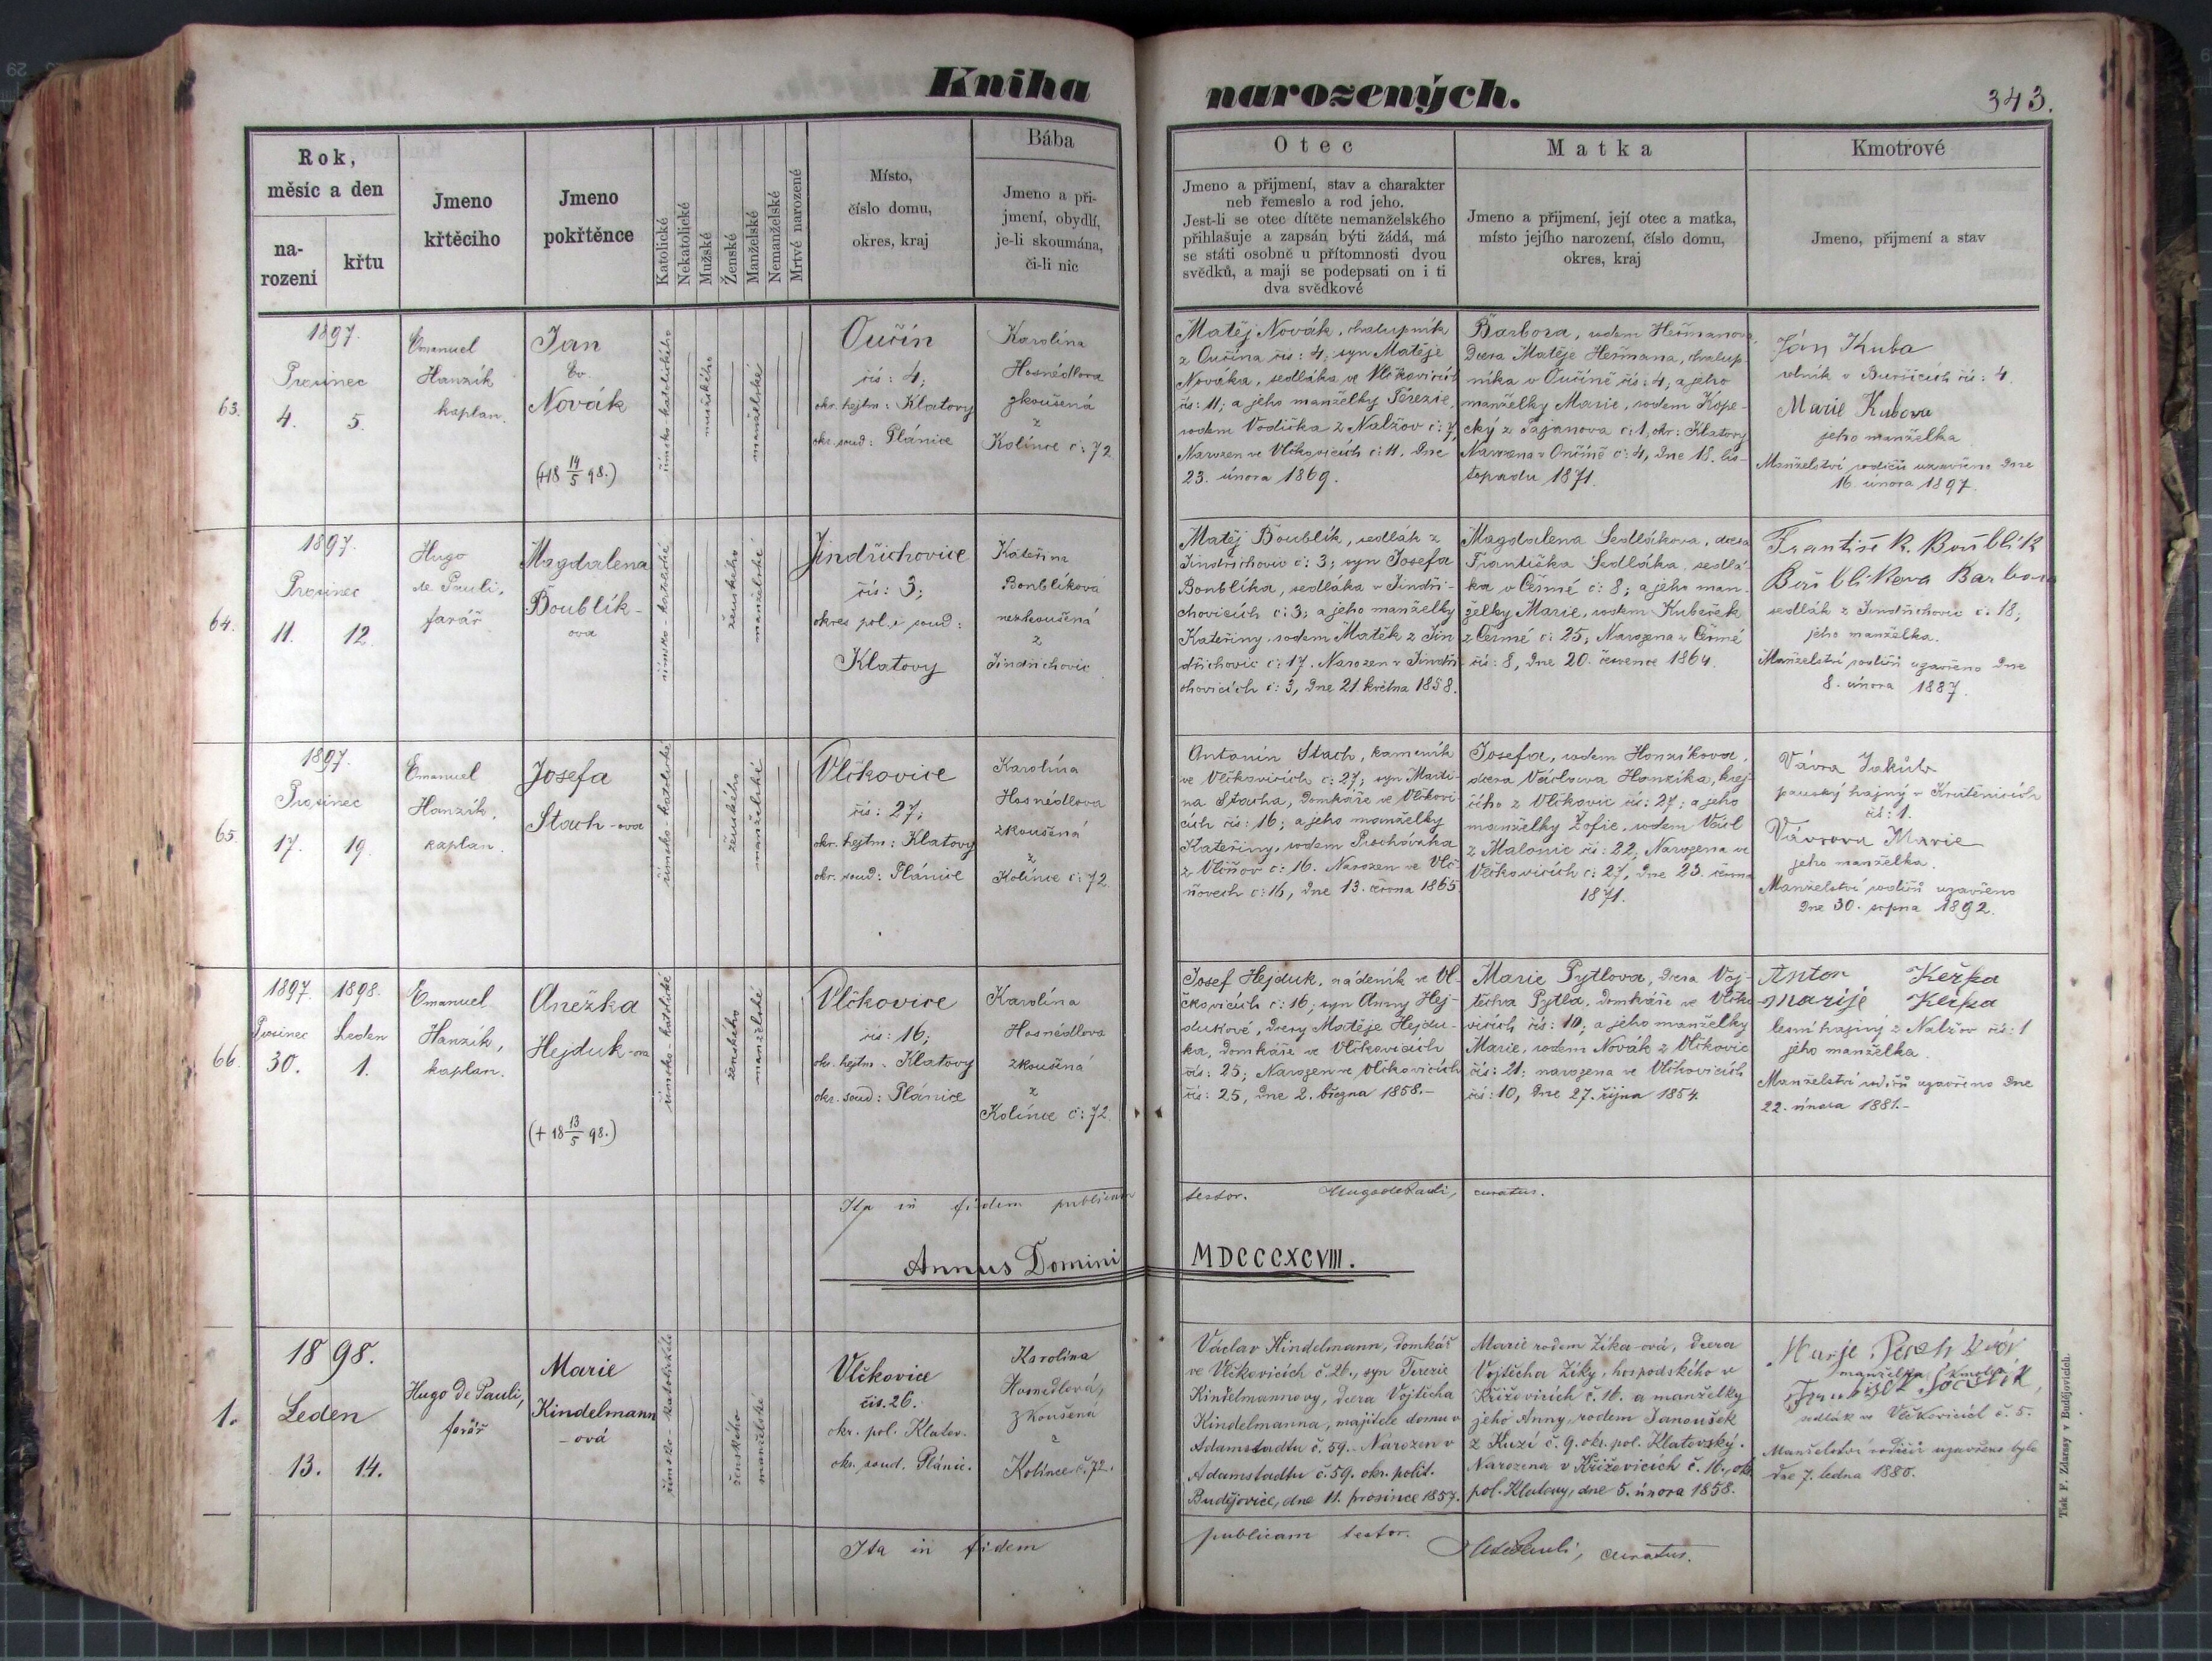 Kniha narozených.
343.
Rok,
měsíc a den
na-
rození
křtu
Jmeno
křtěcího
Jmeno
pokřtěnce
Katolické
Nekatolické
Mužské
Ženské
Manželské
Nemanželské
Mrtvé narozené
Místo,
číslo domu,
okres, kraj
Bába
Jmeno a pří-
jmení, obydlí,
je-li skoumána,
či-li nic
Otec
Jmeno a přijmení, stav a charakter
neb řemeslo a rod jeho.
Jest-li se otec dítěte nemanželského
přihlašuje a zapsán býti žádá, má
se státi osobně u přítomnosti dvou
svědků, a mají se podepsati on i ti
dva svědkové
Matka
Jmeno a přijmení, její otec a matka,
místo jejího narození, číslo domu,
okres, kraj
Kmotrové
Jmeno, přijmení a stav
63.
1897.
Prosinec
4. 5.
Emanuel
Hanzík
kaplan.
Jan
Ev.
Novák
(+18 14/5 98.)
římsko-katolického
mužského
manželské
Ouřín
čís: 4;
okr. hejtm: Klatovy
okr. soud: Plánice
Karolína
Hosnédlova
zkoušená
z
Kolince č: 72
Matěj Novák, chalupník
z Ouřína čís: 4; syn Matěje
Nováka, sedláka ve Vlčkovicích
čís: 11; a jeho manželky Terezie,
rodem Vodička z Nalžov č: 7,
Narozen ve Vlčkovicích č: 11. dne
23. února 1869.
Barbora, rodem Heřmanova,
dcera Matěje Heřmana, chalup
níka v Ouříně čís: 4; a jeho
manželky Marie, rodem Kope-
cký z Pajanova č: 1, okr: Klatovy
Narozena v Ouříně č: 4, dne 18. lis-
topadu 1871.
Ján Kuba
rolník v Buršicích čís: 4.
Marie Kubova
jeho manželka
Manželství rodičů uzavřeno dne
16. února 1897.
64.
1897.
Prosinec
11. 12.
Hugo
de Pauli,
farář
Magdalena
Boublík-
ova
římsko-katolické
ženského
manželské
Jindřichovice
čís: 3;
okres pol. i soud:
Klatovy
Kateřina
Boublíková
nezkoušená
z
Jindřichovic
Matěj Boublík, sedlák z
Jindřichovic č: 3; syn Josefa
Boublíka, sedláka v Jindři-
chovicích č: 3; a jeho manželky
Kateřiny, rodem Matěk z Jin
dřichovic č: 17. Narozen v Jindři
chovicích č: 3, dne 21. května 1858.
Magdalena Sedlákova, dcera
Františka Sedláka, sedlá-
ka v Čermé č: 8; a jeho man-
želky Marie, rodem Kubeček
z Čermé č: 25; Narozena v Čermé
čís: 8, dne 20. července 1864.
František Boublík
Boublikova Barbora
sedlák z Jindřichovic č: 18;
jeho manželka.
Manželství rodičů uzavřeno dne
8. února 1887.
65.
1897.
Prosinec
17. 19.
Emanuel
Hanzík,
kaplan.
Josefa
Stach-ova
římsko-katolické
ženského
manželské
Vlčkovice
čís: 27;
okr. hejtm: Klatovy
okr. soud: Plánice
Karolína
Hosnédlova
zkoušená
z
Kolince č: 72.
Antonín Stach, kameník
ve Vlčkovicích č: 27; syn Marti-
na Stacha, domkáře ve Vlčkovi
cích čís: 16; a jeho manželky
Kateřiny, rodem
z Vlčňov č: 16. Narozen ve Vlč-
ňovech č: 16, dne 13. června 1865.
Josefa, rodem Hanzíkova,
dcera Václava Hanzíka, krej-
čího z Vlčkovic čís: 27; a jeho
manželky Žofie, rodem
z Malonic čís: 22; Narozena ve
Vlčkovicích č: 27, dne 23. června
1871.
Vávra Jakub
panský hajný v
čís: 1.
Vávrova Marie
jeho manželka.
Manželství rodičů uzavřeno
dne 30. srpna 1892.
66.
1897. 1898.
Prosinec Leden
30. 1.
Emanuel
Hanzík,
kaplan.
Anežka
Hejduk-ova
(+ 18 13/5 98.)
římsko-katolické
ženského
manželské
Vlčkovice
čís: 16;
okr. hejtm: Klatovy
okr. soud: Plánice
Karolína
Hosnédlova
zkoušená
z
Kolince č: 72.
Josef Hejduk, nádeník ve Vl-
čkovicích č: 16; syn Anny Hej-
dukové, dcery Matěje Hejdu-
ka, domkáře ve Vlčkovicích
čís: 25; Narozen ve Vlčkovicích
čís: 25, dne 2. března 1858.-
Marie Pytlova, dcera Voj-
těcha Pytla, domkáře ve Vlčko
vicích čís: 10; a jeho manželky
Marie, rodem Novák z Vlčkovic
čís: 21; narozena ve Vlčkovicích
čís: 10, dne 27. října 1854.
Anton Keřka
Marije Keřka
lesní hajný z Nalžov čís: 1
jeho manželka.
Manželství rodičů uzavřeno dne
22. února 1881.-
Ita in fidem publicam testor. Hugo de Pauli, curatus.
Annus Domini MDCCCXCVIII.
1.
1898.
Leden
13. 14.
Hugo de Pauli,
farář
Marie
Kindelmann
-ová
římsko-katolické
ženského
manželské
Vlčkovice
čís. 26.
okr. pol. Klatov.
okr. soud. Plánic.
Karolína
Hosnedlová,
zkoušená
z
Kolince č. 72.
Václav Kindelmann, domkář
ve Vlčkovicích č. 26., syn Terezie
Kindelmannovy, dcera Vojtěcha
Kindelmanna, majitele domu v
Adamstadtu č. 59.- Narozen v
Adamstadtu č. 59. okr. polit.
Budějovice, dne 11. prosince 1857.
Marie rodem Zíka-ová, dcera
Vojtěcha Zíky, hospodského v
Křižovicích č. 16. a manželky
jeho Anny, rodem Janoušek
z Kuzí č. 9. okr. pol. Klatovský.
Narozena v Křižovicích č. 16., okr.
pol. Klatovy, dne 5. února 1858.
Marje
manželka kmotra
František
sedlák ve Vlčkovicích č. 5.
Manželství rodičů uzavřeno bylo
dne 7. ledna 1880.
Ita in fidem publicam testor. curatus.
Tisk F. Zdarssy v Budějovicích.